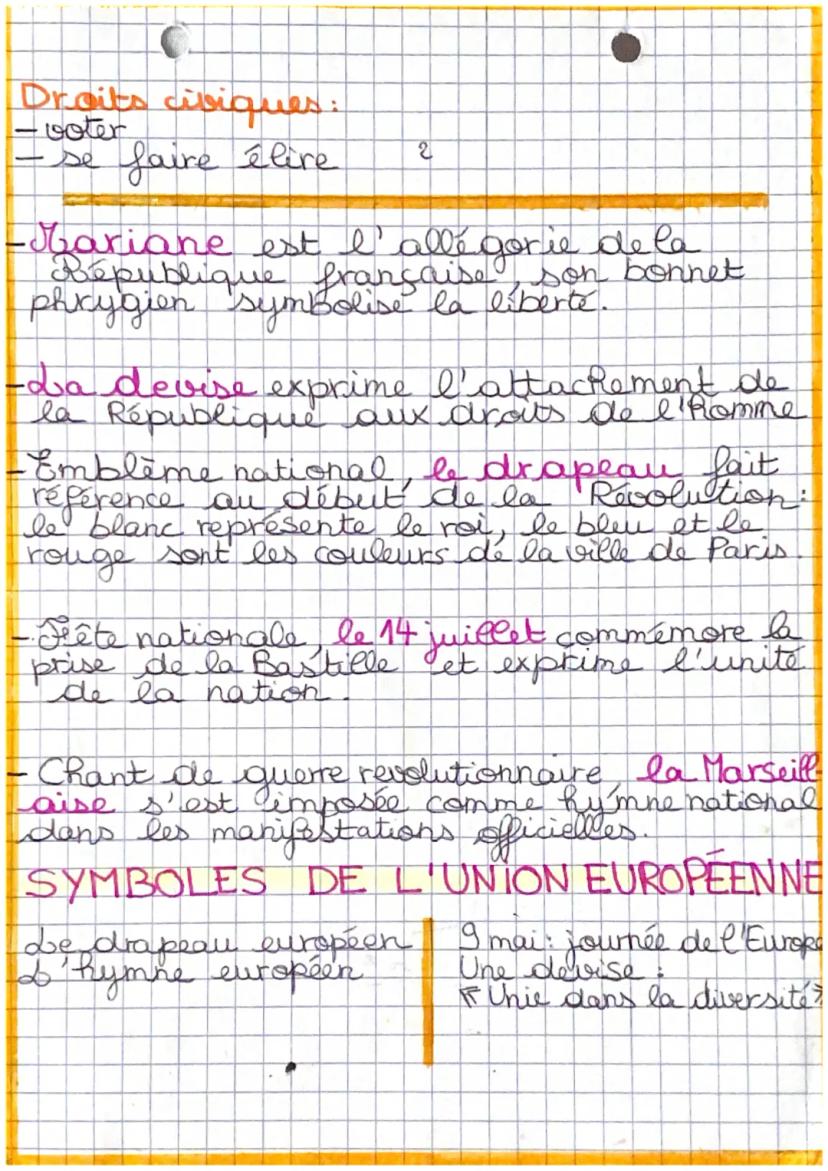 Droits civiques :
- voter
- se faire élire 2
- Mariane est l'allégorie de la
République française, son bonnet
phrygien symbolise la liberté.
- La devise exprime l'attachement de
la République aux droits de l'Homme
- Emblème national, le drapeau fait
référence au début de la Révolution :
le blanc représente le roi, le bleu et le
rouge sont les couleurs de la ville de Paris.
- Fête nationale, le 14 juillet commémore la
prise de la Bastille et exprime l'unité
de la nation.
- Chant de guerre revolutionnaire, la Marseill
aise s'est imposée comme hymne national
dans les manifestations officielles.
SYMBOLES DE L'UNION EUROPÉENNE
Le drapeau européen
L'hymne européen
9 mai : journée de l'Europe
Une devise :
« Unie dans la diversité »